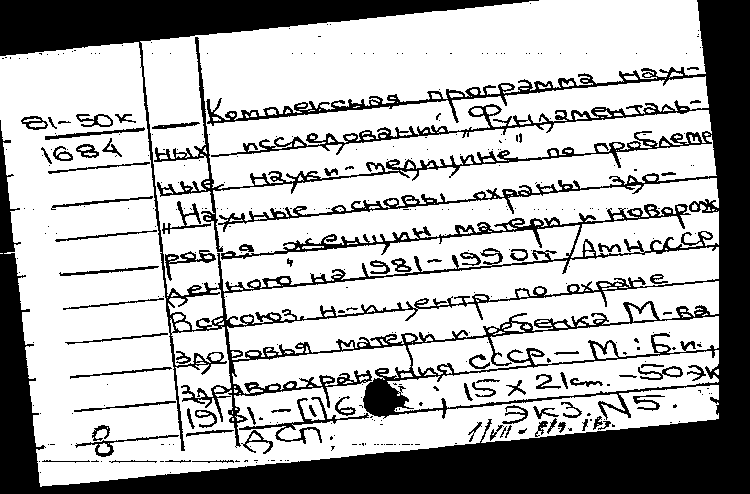 81-50к
1684
Комплексная программа науч-
ных исследований „Фундаменталь-
ные науки - медицине" по проблеме
„Научные основы охраны здо-
ровья женщин, матери и новорож
денного" на 1981-1990 гг. / АМН СССР,
Всесоюз. н.-и. центр по охране
здоровья матери и ребенка М-ва
здравоохранения СССР. - М.: Б.и.,
1981. - [1], 6 ; 15 х 21 см. - 50 эк
ДСП; экз. N5.
8